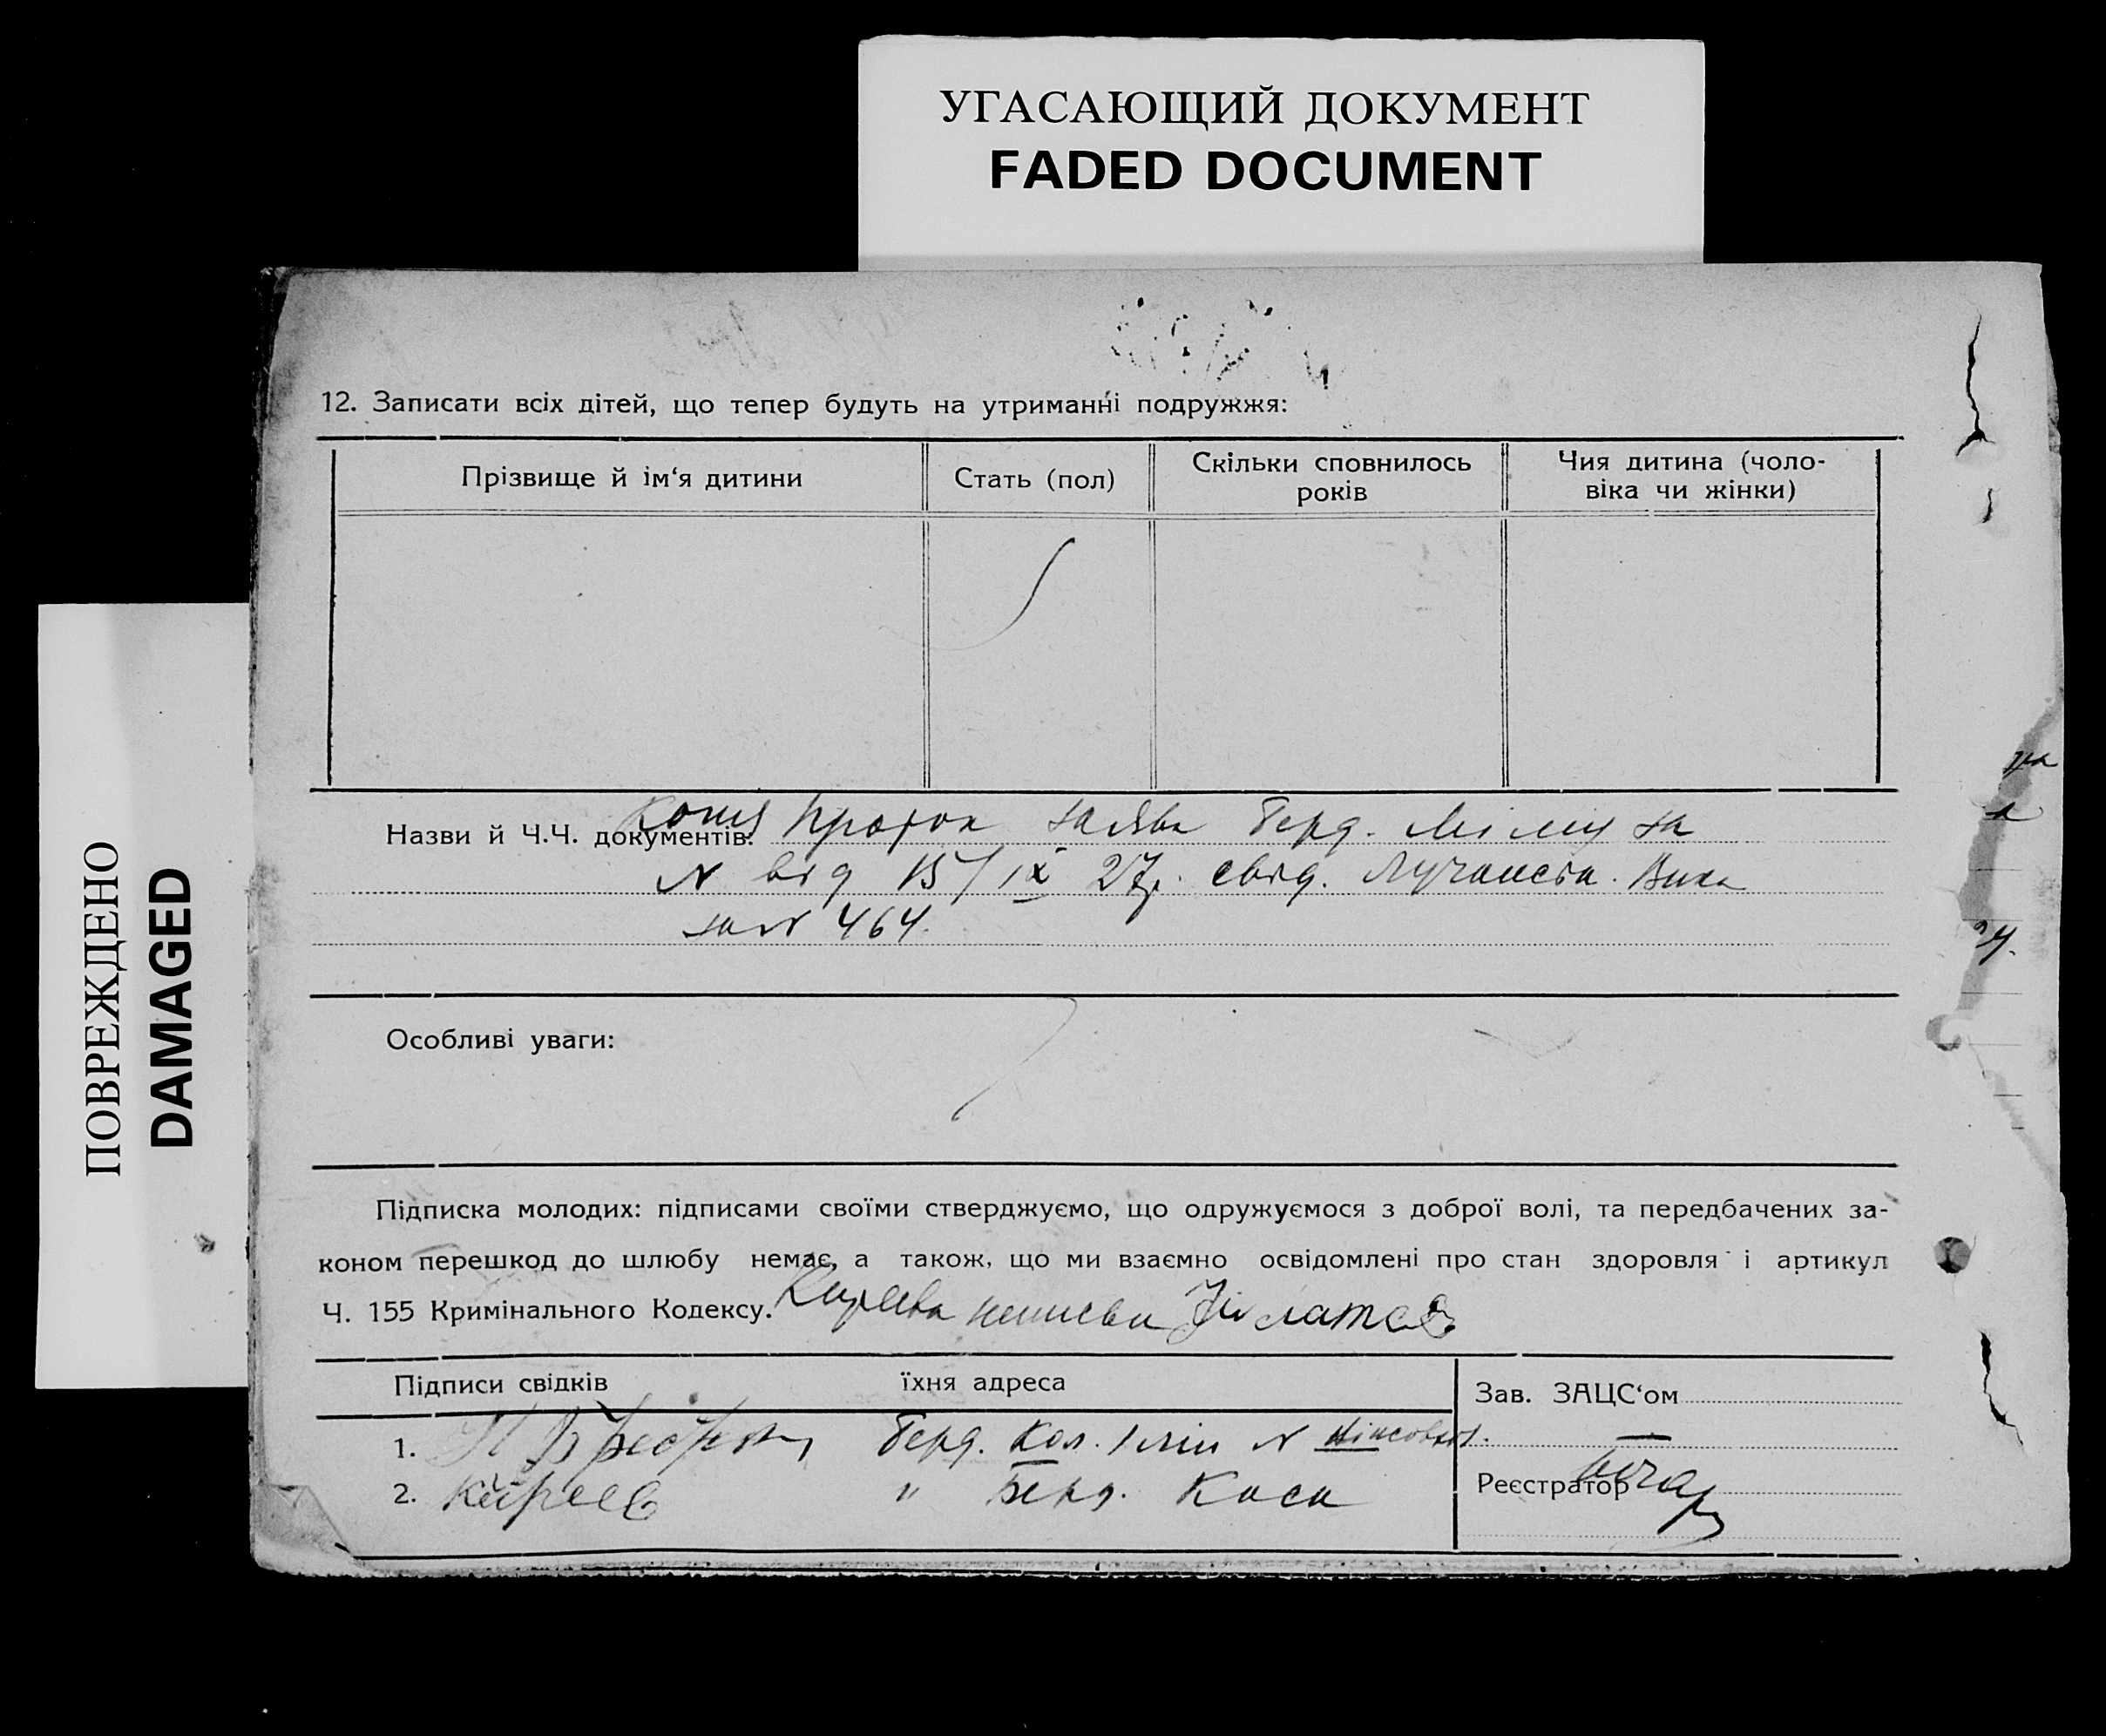 УГАСАЮЩИЙ ДОКУМЕНТ
FADED DOCUMENT
ПОВРЕЖДЕНО
DAMAGED
12. Записати всіх дітей, що тепер будуть на утриманні подружжя:
Прізвище й ім‘я дитини
Стать (пол)
Скільки сповнилось
років
Чия дитина (чоло-
віка чи жінки)
Назви й Ч.Ч. документів: заява Берд.
N від 15/IX 27р. свід.
за N 464.
Особливі уваги:
Підписка молодих: підписами своїми стверджуємо, що одружуємося з доброї волі, та передбачених за-
коном перешкод до шлюбу немає, а також, що ми взаємно освідомлені про стан здоровля і артикул
Ч. 155 Кримінального Кодексу.
Підписи свідків
їхня адреса
Зав. ЗАЦС‘ом
1. Берд. Кол. 1 N
2. Кіреев " Берд. Коса
Реєстратор